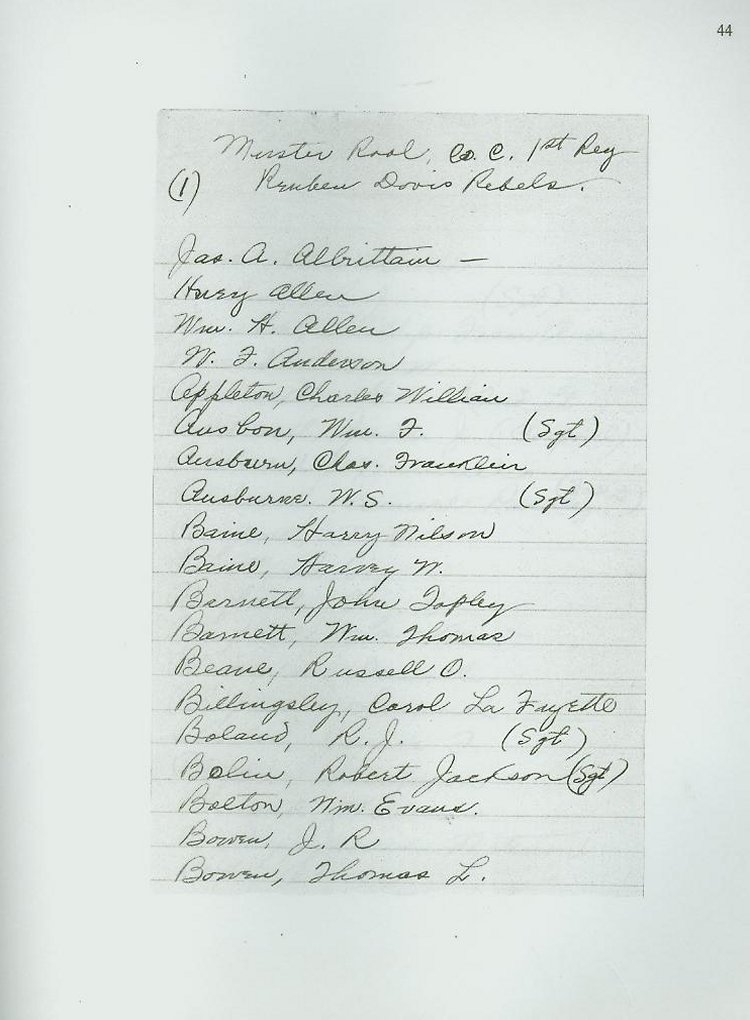 44
Muster Rool, Co. C. 1st Reg
(1) Reuben Davis Rebels.
Jas. A. Albrittain —
Huey Allen
Wm. H. Allen
W. F. Anderson
Appleton, Charles William
Ausbon, Wm. F. (Sgt)
Ausburn, Chas. Francklin
Ausburne. W. S. (Sgt)
Baine, Harry Nilson
Baine, Harvey N.
Barnett, John Tapley
Barnett, Wm. Thomas
Beane, Russell O.
Billingsley, Carol La Fayette
Boland, R. J. (Sgt)
Bolin, Robert Jackson (Sgt)
Bolton, Wm. Evans.
Bowen, J. R
Bowen, Thomas L.